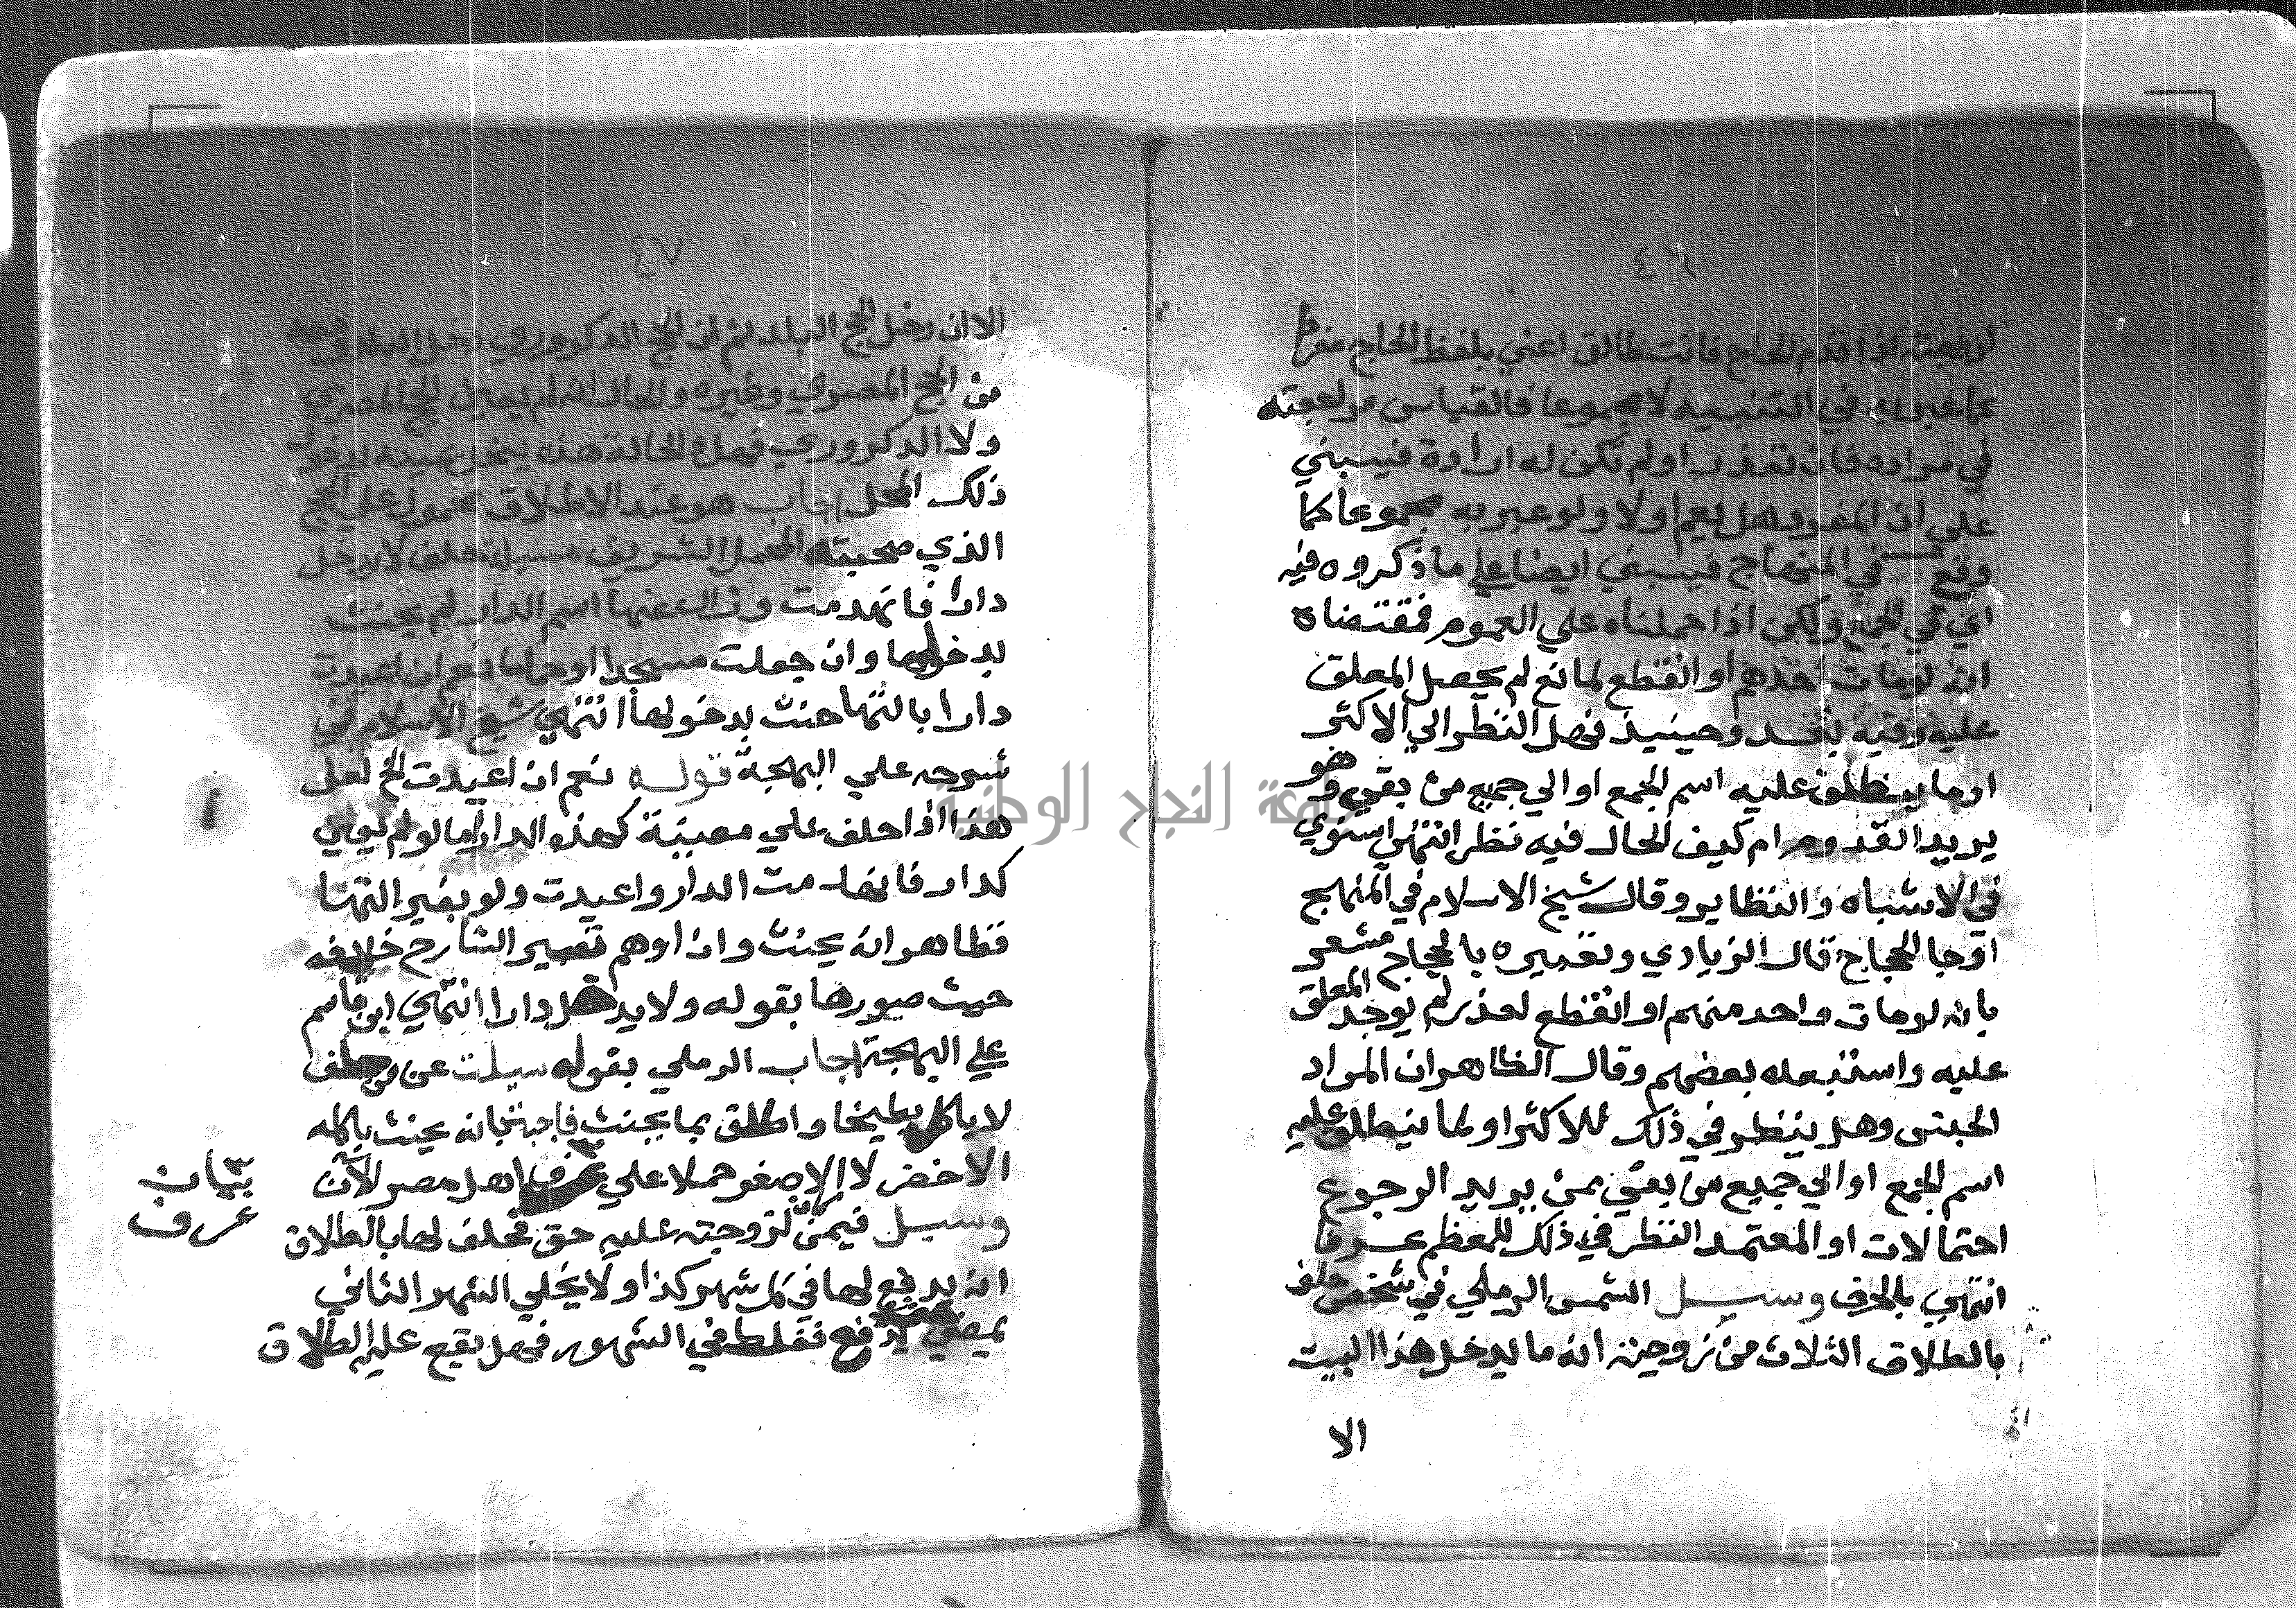 ٤٦
لزوجته اذا قدم الحاج فانت طالق اعني بلفظ الحاج مفردا
كما عبر به في التنبيه لا مجموعا فالقياس مراجعته
في مراده فان تعذر او لم تكن له ارادة فينبني
على ان المفرد هل يعم او لا ولو عبر به مجموعا كما
وقع في المنهاج فينبني ايضا علي ما ذكروه فيه
اي في الجمع ولكن اذا حملناه علي العموم فمقتضاه
انه لو مات احدهم او انقطع لمانع لم يحصل المعلق
عليه وفيه بعد وحينيذ فهل النظر الي الاكثر
او ما ينطلق عليه اسم الجمع او الي جميع من بقي وهو
يريد القدوم ام كيف الحال فيه نظر انتهى اسنوي
في الاشباه والنظاير وقال شيخ الاسلام في المنهج
او جا الحجاج قال الزيادي وتعبيره بالحجاج مشعر
بانه لو مات واحد منهم او انقطع لعذر لم يوجد المعلق
عليه واستبعده بعضهم وقال الظاهر ان المراد
الجنس وهل ينظر في ذلك للاكثر او لما ينطلق عليه
اسم الجمع او الي جميع من بقي ممن يريد الرجوع
احتمالات او المعتمد النظر في ذلك للمعظم عرفا
انتهي بالحرف وسيل الشمس الرملي في شخص حلف
بالطلاق الثلاث من زوجته انه ما يدخل هذا البيت
الا
٤٧
الا ان دخل الحج البلد ثم ان الحج الدكروري دخل البلد وهو
من الحج المصري وغيره والحال انه لم يعين الحج المصري
ولا الدكروري فهل والحالة هذه ينحل يمينه لدخول
ذلك المحل اجاب هو عند الاطلاق محمول علي الحج
الذي صحبته المحمل الشريف مسيلة حلف لا يدخل
دارا فانهدمت وزال عنها اسم الدار لم يحنث
بدخولها وان جعلت مسجدا او حماما نعم ان اعيدت
دارا بالتها حنث بدخولها انتهي شيخ الاسلام في
شرحه علي البهجة قوله نعم ان اعيدت الخ لعل
هذا اذا حلف علي معينة كهذه الدار اما لو لم يعين
كدار فانهدمت الدار واعيدت ولو بغير التها
فظاهر انه يحنث وان اوهم تعبير الشارح خلافه
حيث صورها بقوله ولا يدخل دارا انتهي ابن قاسم
علي البهجة اجاب الرملي بقوله سيلت عن من حلف
لا ياكل بطيخا واطلق بما يحنث فاجبت بانه يحنث باكله
الاخضر لا الاصفر حملا علي عرف اهل مصر الآن
وسيل فيمن لزوجته عليه حق فحلف لها بالطلاق
انه يدفع لها في كل شهر كذا ولا يخلي الشهر الثاني
يمضي يدفع فغلط في الشهور فهل يقع عليه الطلاق
بيان
عرف
جامعة النجاح الوطنية